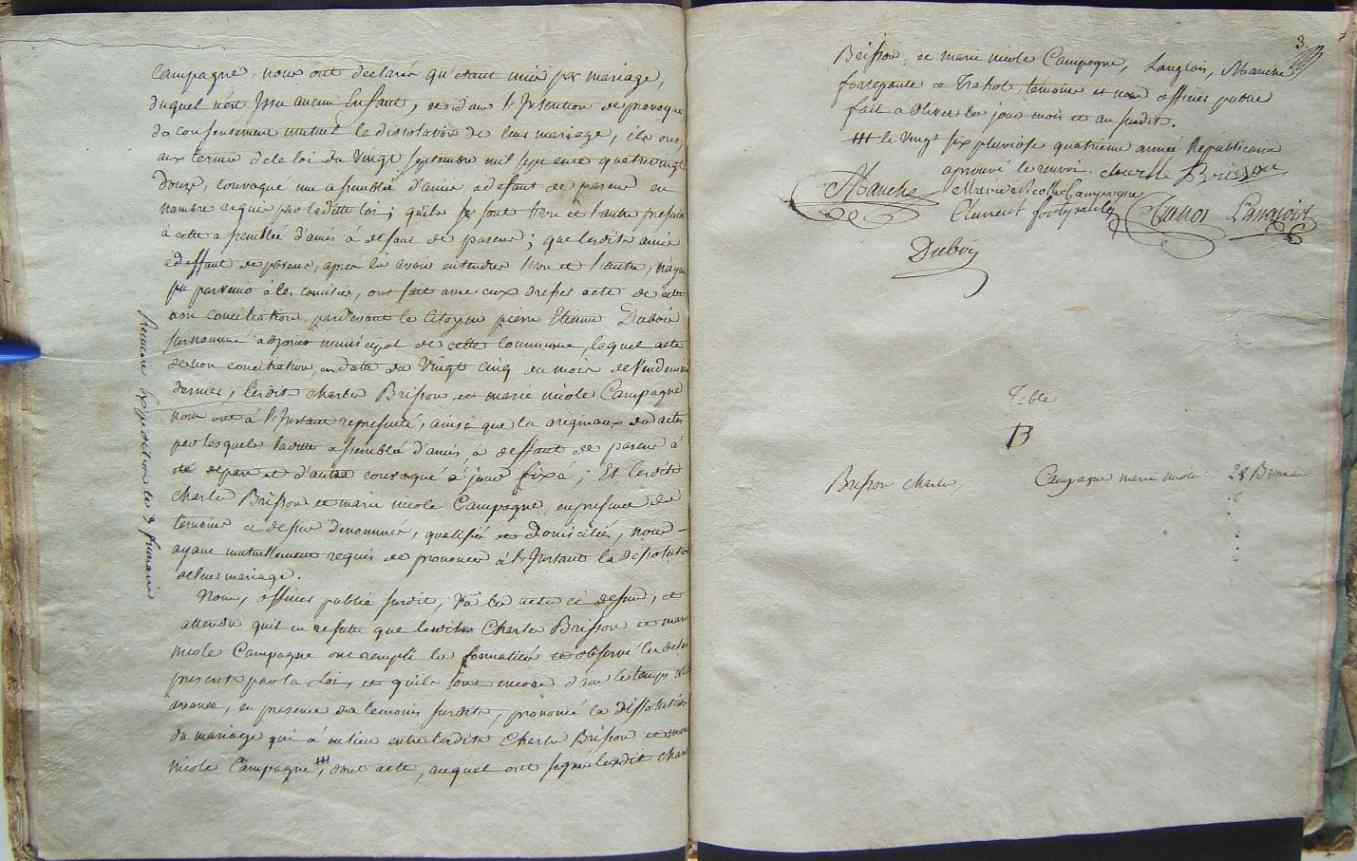 Campagne, nous ont declarés qu'etant unis par mariage,
duquel n'est Issu aucun Enfant, et dans l'Intention de provoquer
du consentement mutuel la dissolution de leur mariage, ils ont
aux termes de la loi du Vingt septembre mil sept cent quatre vingt
douze, convoqué une assemblée d'amis, a defaut de parens en
nombre requis par ladite loi; qu'ils se sont l'un et l'autre presentés
à cette assemblée d'amis à defaut de parens; que lesdits amis
à deffaut de parens, après les avoir entendus l'un et l'autre, n'ayant
pu parvenir à les concilier, ont fait avec eux dresser acte de cette
non conciliation pardevant le Citoyen pierre Etienne Dubois
surnommé adjoint municipal de cette Commune, lequel acte
de non conciliation, en datte du Vingt cinq du mois de Vendemiaire
dernier, lesdits charles Brisson, et marie nicole Campagne
nous ont à l'Instant representé, ainsi que les originaux des actes
par lesquels ladite assemblée d'amis, à deffaut de parens à
été de part et d'autre convoqué à jour fixé; Et lesdits
charles Brisson et marie nicole Campagne, en presence des
temoins ci dessus denommés, qualifiés et Domiciliés, nous
ayant mutuellement requis de prononcer à l'Instant la Dissolution
de leur mariage.
Nous, officier public susdit, Vû les actes ci dessus, et
attendu qu'il en resulte que lesdits Charles Brisson et marie
nicole Campagne ont rempli les formalités et observé les delais
prescrits par la Loi, et qu'ils sont encore dans le temps
, en presence des temoins susdits, prononcé la Dissolution
du mariage qui à eu lieu entre lesdits Charles Brisson et marie
nicole Campagne, dont acte, auquel ont signé lesdits charles
expedition le 9 frimaire
3
Brisson, et marie nicole Campagne, Langlois, Manche
fortepaule et Trahot, temoins et nous officier public
fait à Olivet les jour mois et an susdit.
le Vingt six pluviose quatrieme année Republicaine
aprouvé le renvoi. charlle Brisson
Manche Marie Nicolle Campagne
Clement fortepaule Trahot Langlois
Dubois
Table
B
Brisson charles, Campagne marie nicole 28 Brumaire